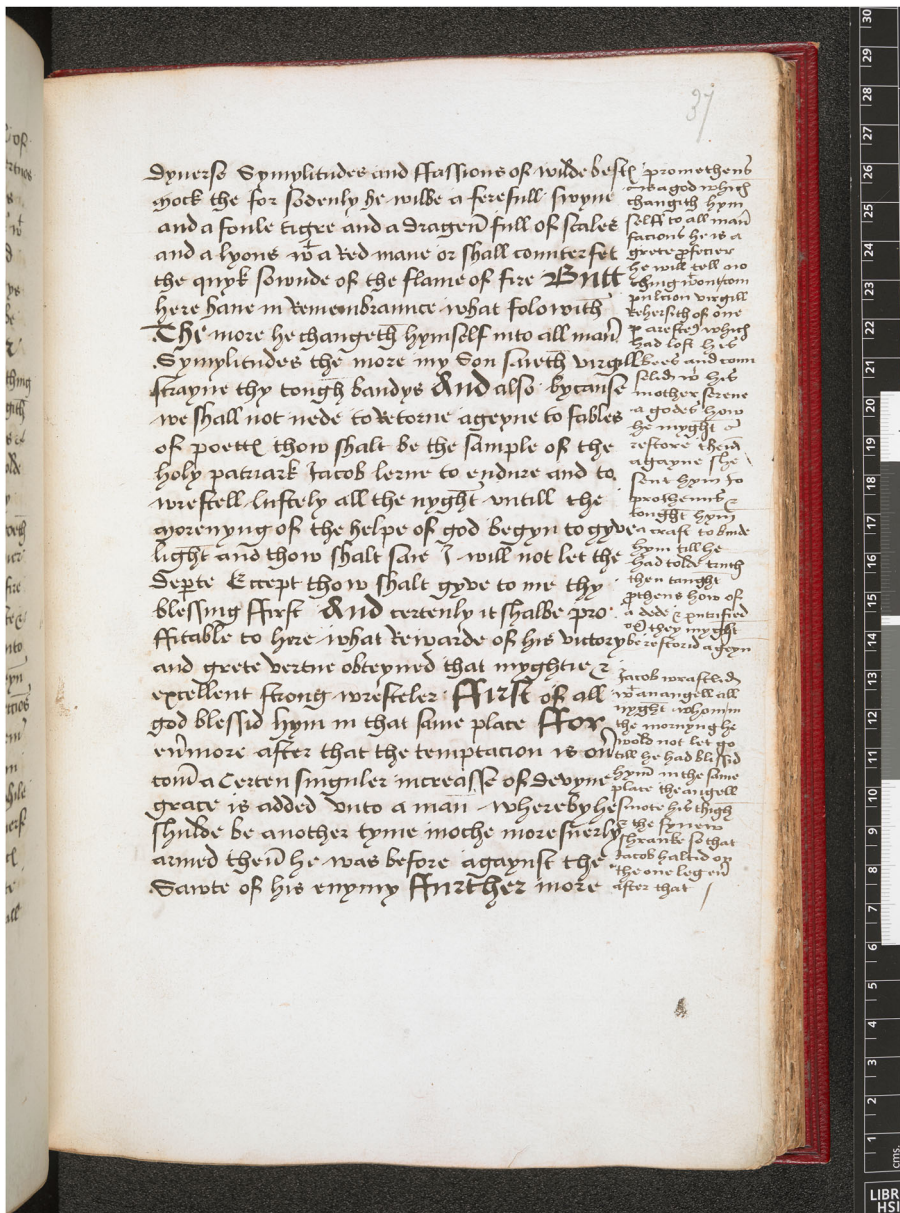 37
dyuerse Symylitudes and ffassions of wilde best
mock the for sodenly he wilbe a ferefull swyne
and a foule tigre and a drageñ full of scales
and a lyons wt a Red mane or shall counterfet
the quyk sownde of the flame of fire Butt
here haue in Remembraunce what folowith
The more he changeth hymself into all mañ
Symylitudes the more my Son saieth virgill
strayne thy tough bandys And also bycause
we shall not nede to Retorne ageyne to fables
of poett thow shalt be the sample of the
holy patriark Jacob lerne to endure and to
wrestell lustely all the nyght vntill the
morenyng of the helpe of god begyn to gyve
light and thow shalt saie I will not let the
depte Except thow shalt gyve to me thy
blessing ffirst And certenly it shalbe pro
ffitable to here what Rewarde of his victory
and grete vertue obteyned that myghtie &
excellent strong wresteler ffirst of all
god blessid hym in that same place ffor
eũmore after that the temptacion is oũ
com a Certen singuler increasse of devyne
grace is added vnto a man wherebyhe
shulde be another tyme moche more sũerly
armed theñ he was before agaynst the
Sawte of his enymy ffurther more
promotheus
is a god which
changith hym
selff to all mañ
facions he is a
grete pfecier
he will tell no
thing wtoutcom
pulcion virgill
Rehersith of one
arestes which
had lost his
bees and coun
selid wt his
mother serene
a godes how
he myght
restore theñ
agayne she
sent hym to
protheus &
tought hym
a craft to binde
hym till he
had tolde truth
then taught
ptheus how of
a dede
they myght
be restorid ageyn
Jacob wrastled
wt an angell all
nyght whom in
the mornyng he
wold not let go
till he had blissid
hym in the same
place the angell
smote his thigh
& the synew
shranke so that
Jacob haltid on
the one leg eũ
after that